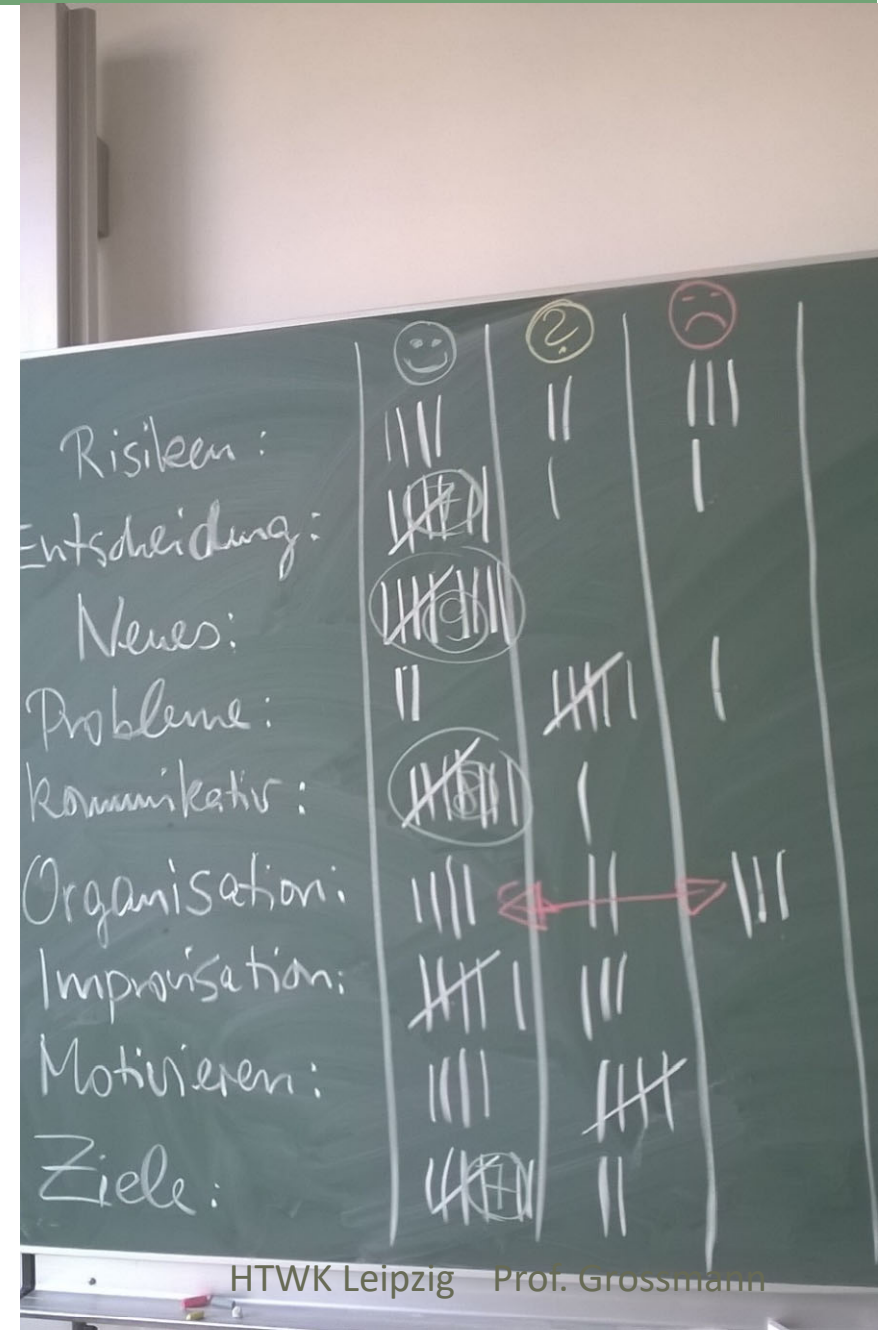 ?
Risiken: |||| || |||
Entscheidung: 7 | |
Neues: 9
Probleme: || |||| | |
kommunikativ: 8 |
Organisation: |||| || |||
Improvisation: |||| | |||
Motivieren: |||| ||||
Ziele: 7 ||
HTWK Leipzig Prof. Grossmann